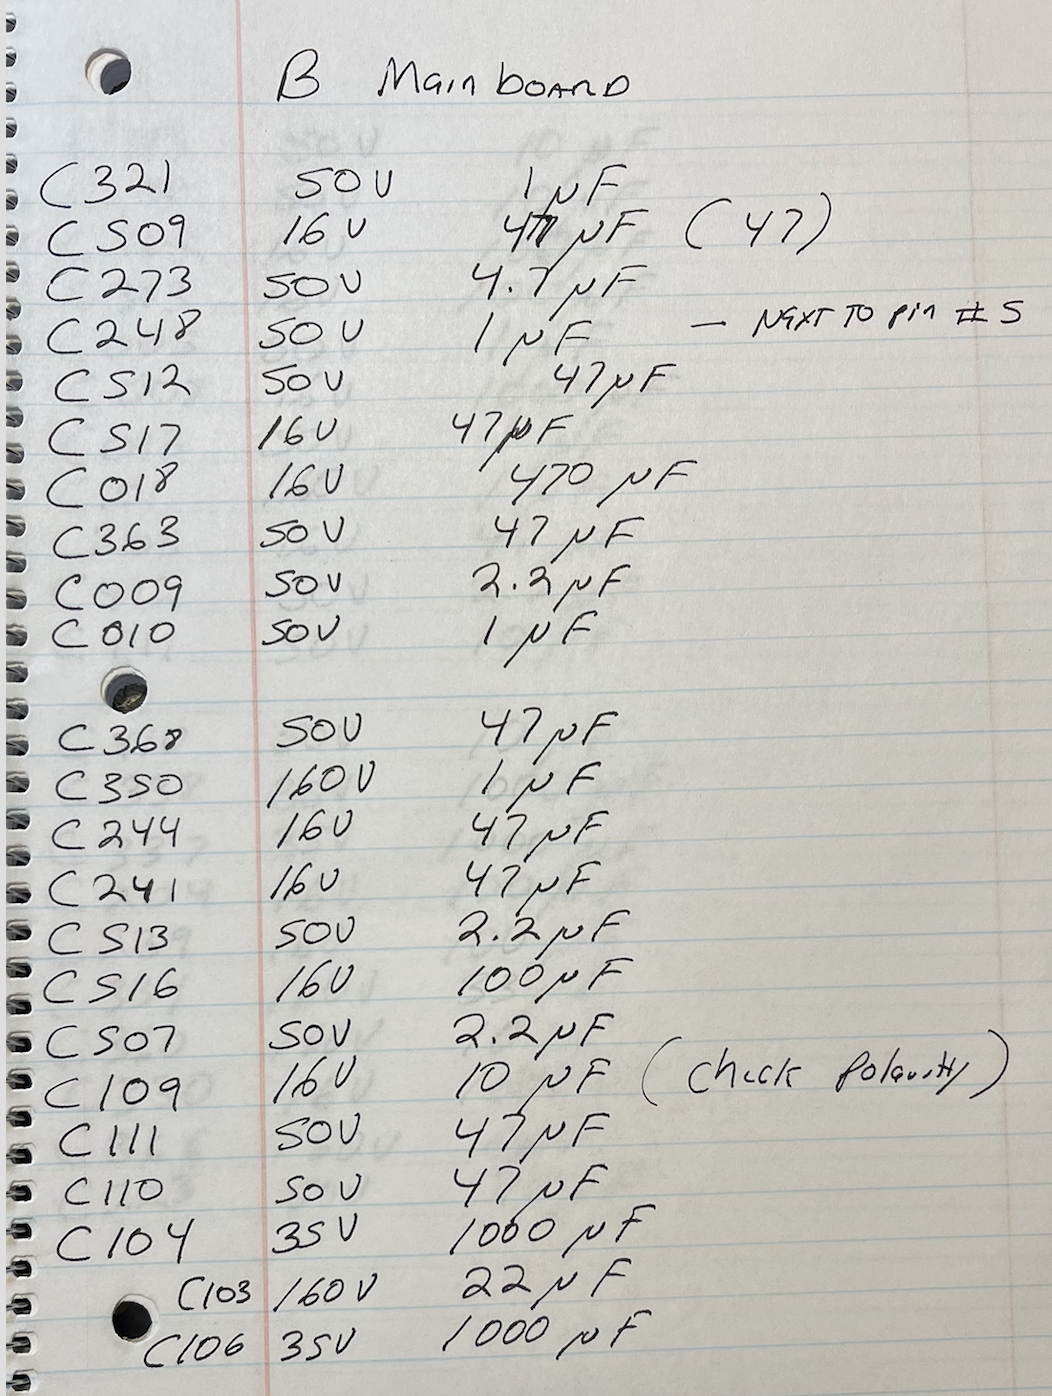 B Mainboard
C321 50V 1µF
C509 16V 47 µF (47)
C273 50V 4.7µF
C248 50V 1µF — NEXT TO Pin #5
C512 50V 47µF
C517 16V 47µF
C018 16V 470 µF
C363 50V 47µF
C009 50V 2.2µF
C010 50V 1µF
C368 50V 47µF
C350 160V 1µF
C244 16V 47µF
C241 16V 47µF
C513 50V 2.2µF
C516 16V 100µF
C507 50V 2.2µF
C109 16V 10 µF (Check Polarity)
C111 50V 47µF
C110 50V 47µF
C104 35V 1000 µF
C103 160V 22µF
C106 35V 1000 µF